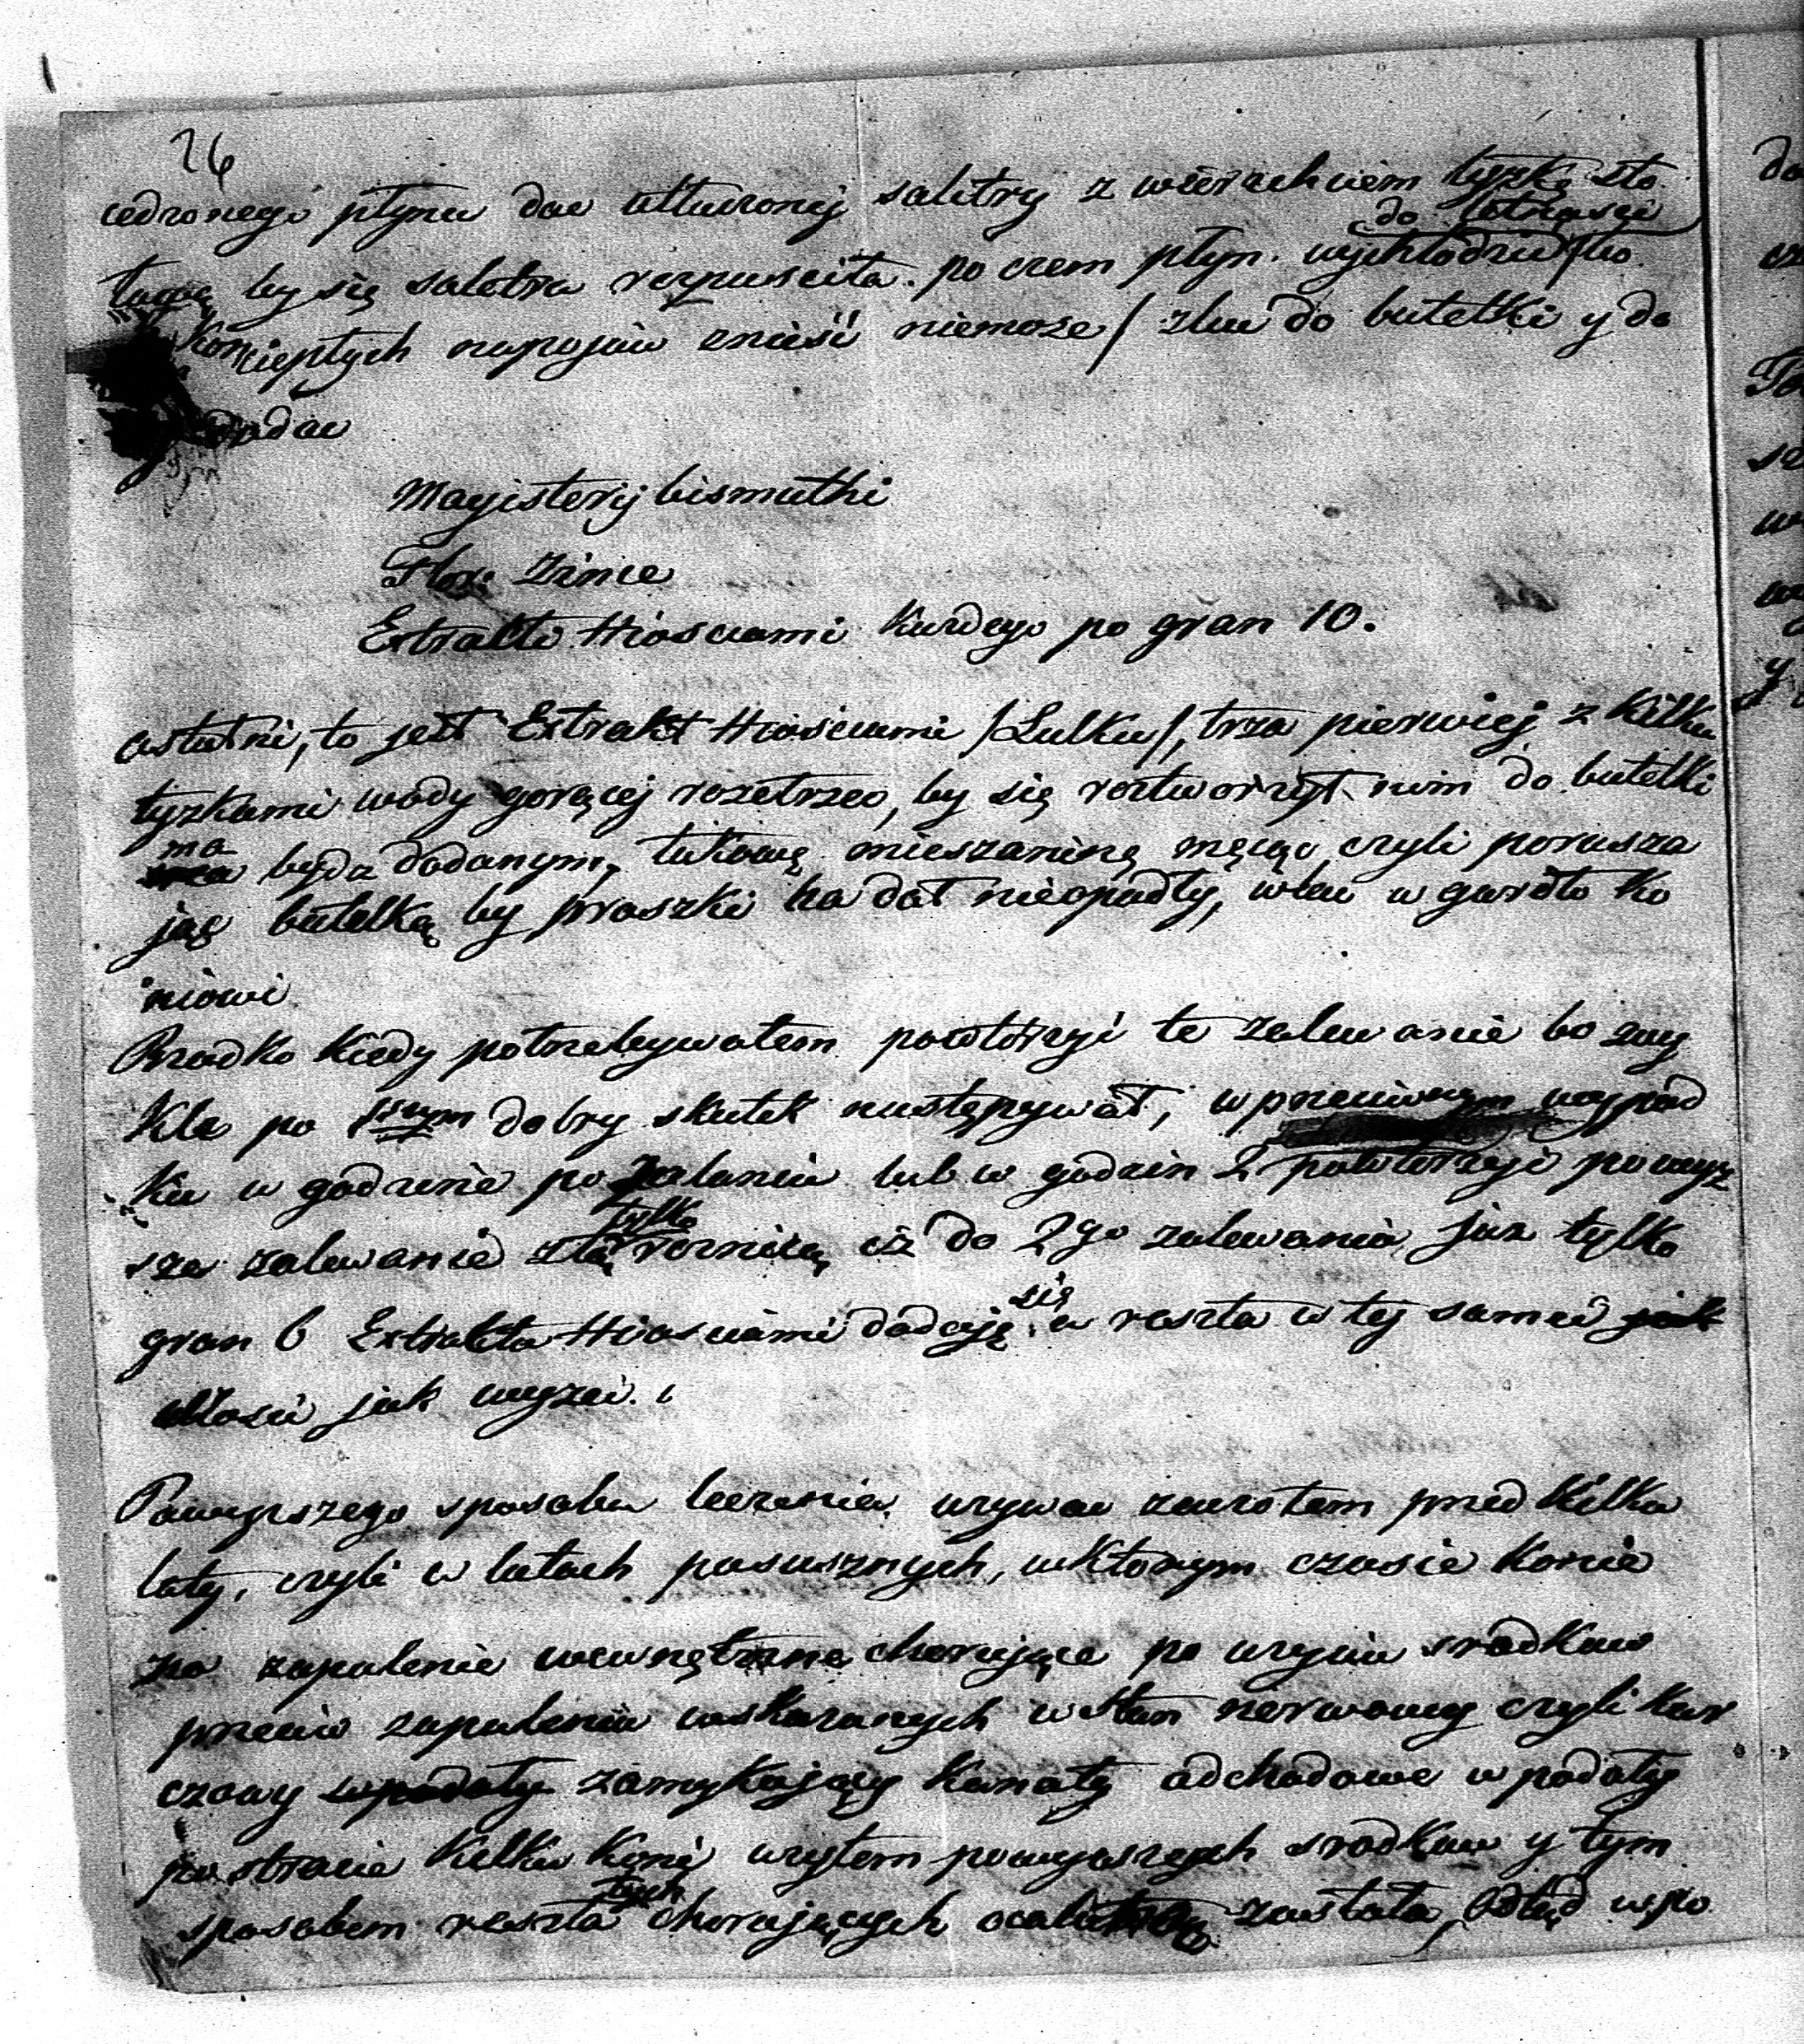 26
cedzonego płynu dac utłuczonej saletry z wierzchiem łyzkę sto
do letnosci
łową by się saletra rozpusciła. po czem płyn. wychłodzic / bo
Kon ciepłych napojów znieść niemoze / zlac do butelki y do
dodac
Magisterij bismuthi
Flor. Zince
Extrakto Hiosciami Kazdego po gran 10.
ostatni, to jest Extrakt Hiosciami / Lulku /, trza pierwiej z kilku
łyzkami wody gorącej rozetrzec, by się roztworzył nim do butelki
ma
będz dodanym, takową mieszaninę mącąc, czyli porusza
jąc butelką by proszki na dół nieopadły, wlac w gardło Ko
niowi
Rzadko Kiedy potrzebywałem powtórzyć te zalewanie bo zwy
Kle po 1szym dobry skutek następywał, w przeciwnym wypad
Ku w godzine po zalaniu lub w godzin 2 powtórzyć powyz
tylko
sze zalewanie z tą roznicą iż do 2go zalewania, juz tylko
się
gran 6 Extrakta Hiosciami dodaję a reszta w tej samei jak
ilosci jak wyzei.
Powyzszego sposobu leczenia uzywac zaczołem przed kilka
laty, czyli w latach posusznych, w Ktorym czasie Konie
na zapalenie wewnętrzne chorujące po uzyciu srodkow
przeciw zapaleniu wskazanych w stan nerwowy czyli kur
czowy wpadały zamykający Kanały odchodowe wpadały
po stracie Kilku Koni uzyłem powyzszych srodkow y tym
tych
sposobem reszta chorujących ocalona została, Odtąd w po